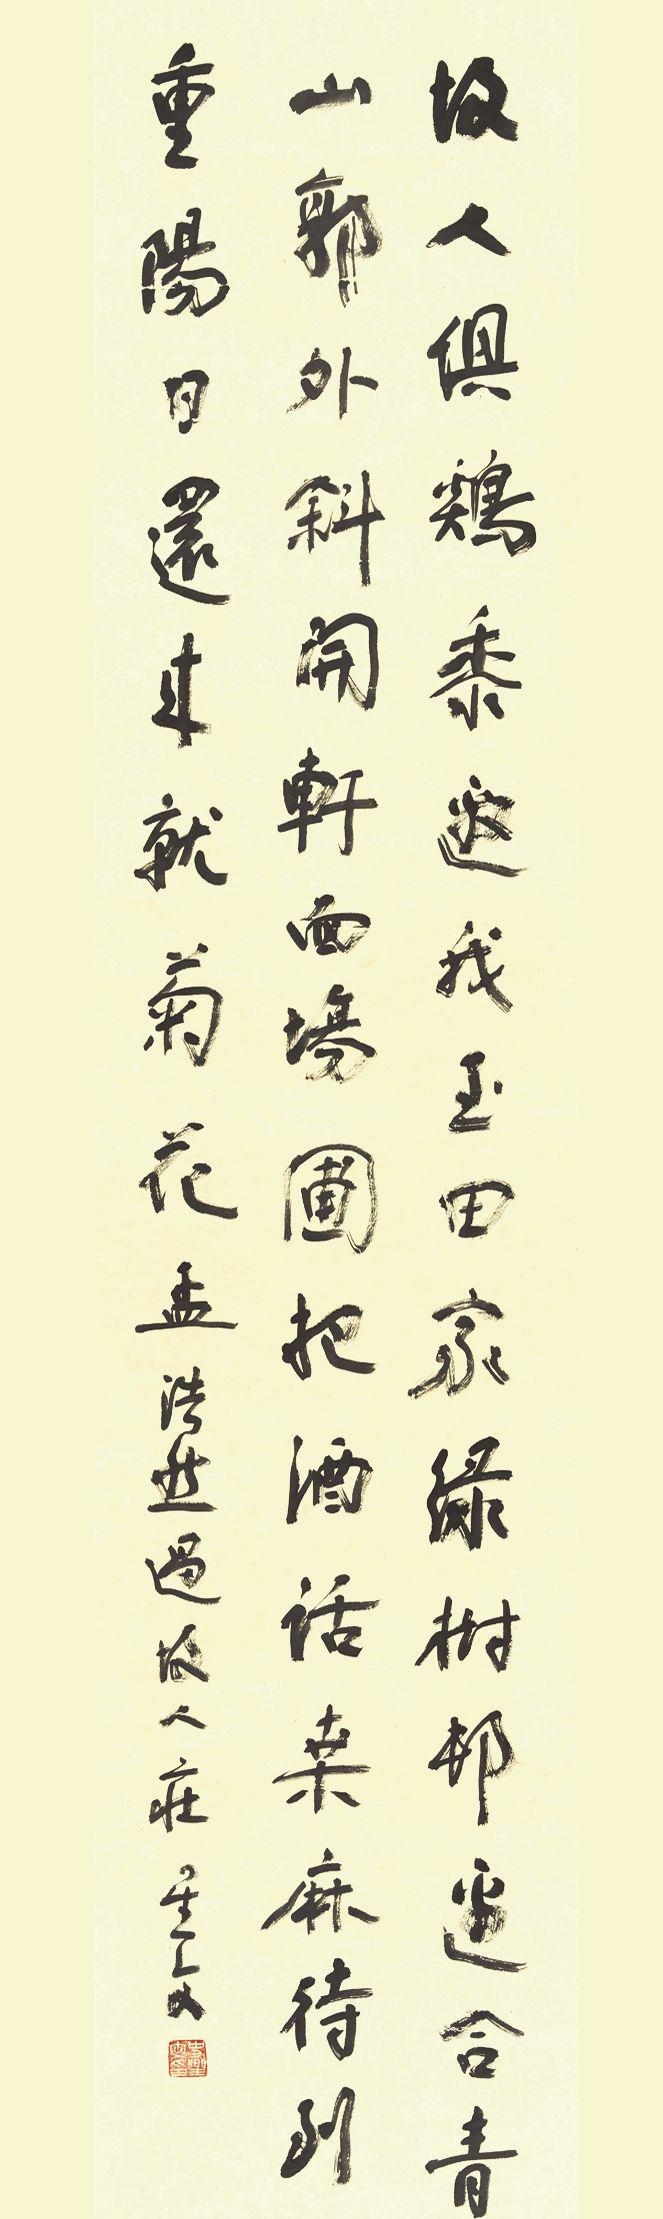 故人俱鷄黍邀我至田家緑樹邨邊合青
山郭外斜開軒面場圃把酒話桑麻待到
重陽日還来就菊花孟浩然過故人莊